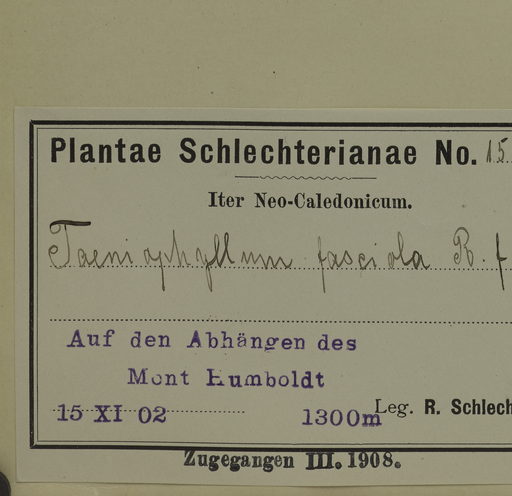 Plantae Schlechterianae No. 15
Iter Neo-Caledonicum.
Taeniophyllum fasciola R. f
Auf den Abhängen des
Mont Humboldt
15 XI 02 1300m Leg. R. Schlech
Zugegangen III. 1908.